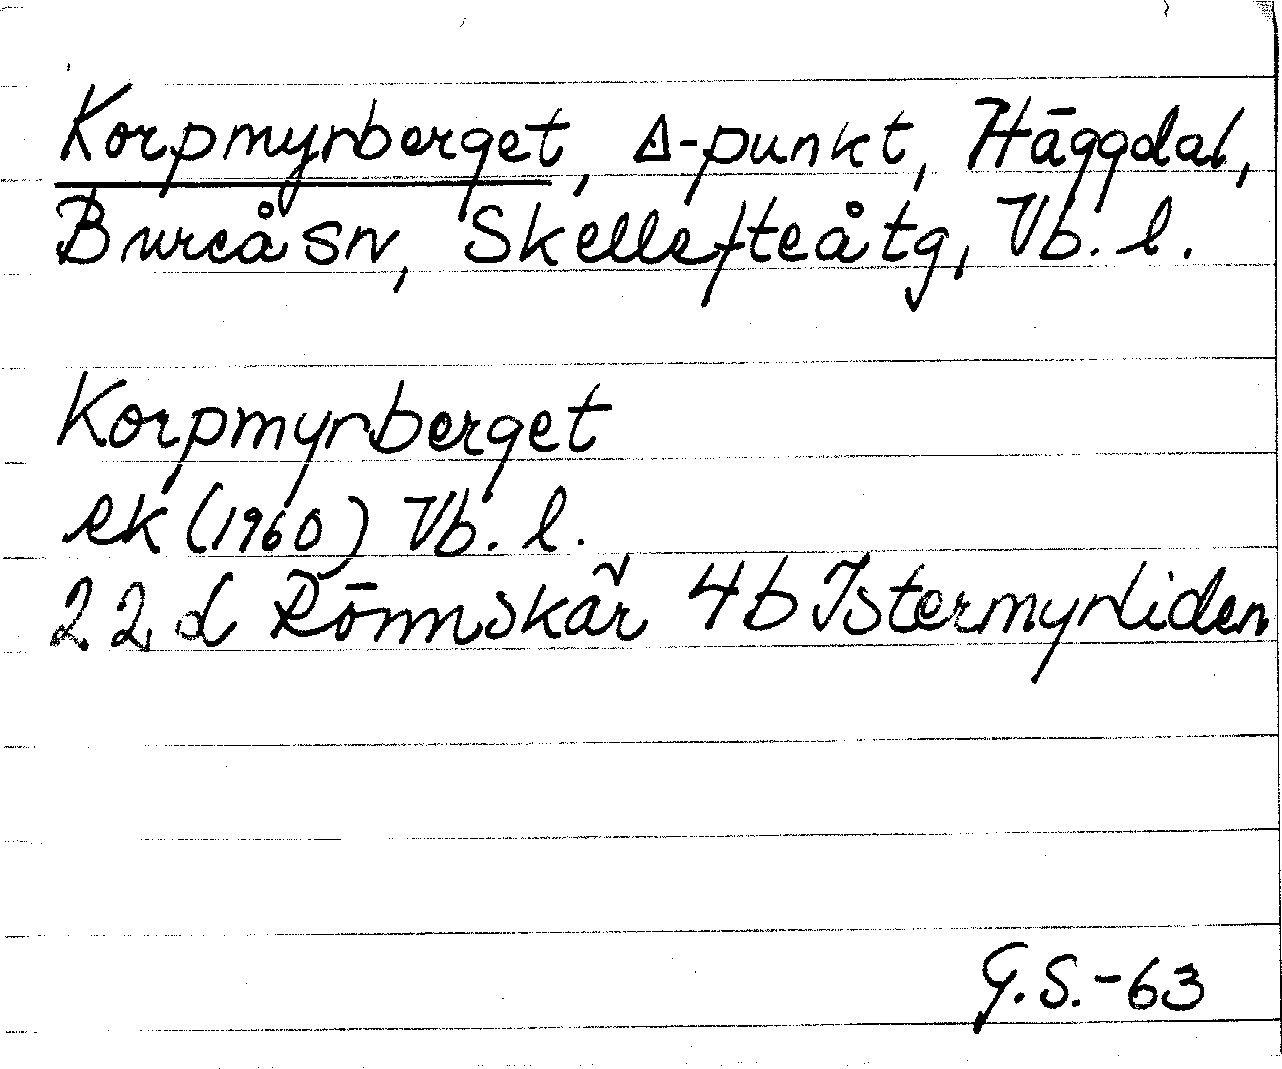 Korpmyrberget, Δ-punkt, Häggdal,
Bureå sn, Skellefteå tg, Vb. l.
Korpmyrberget
ek (1960) Vb. l.
22 d Rönnskär 4b Istermyrliden
G.S.-63